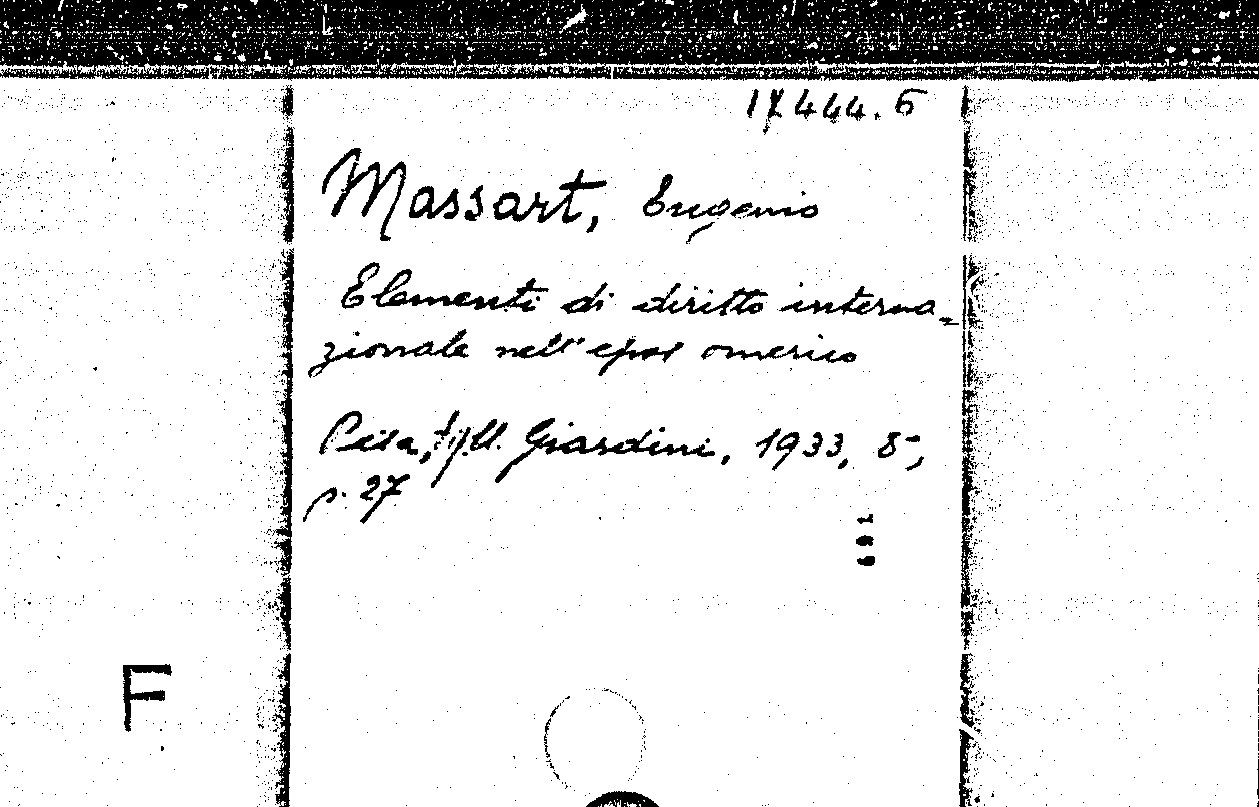 444.6
Massart, Eugenio
Elementi di diritto interna=
zionale nell'epos omerico
Pisa, tip. Giardini, 1933, 8-,
p. 27
F